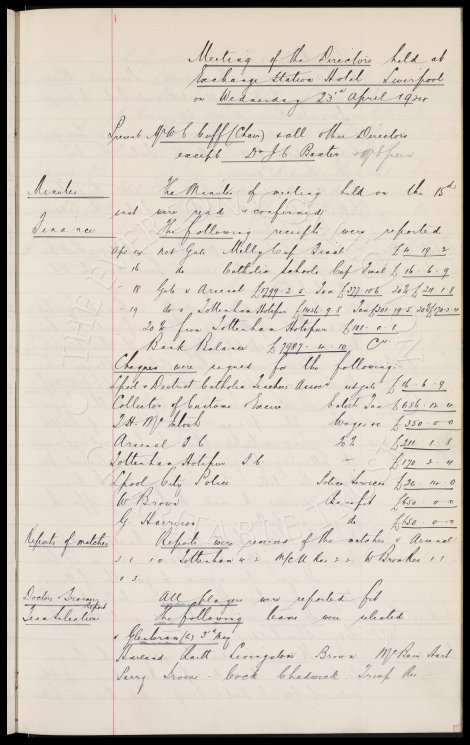 Meeting of the Directors held at
Exchange Station Hotel Liverpool
on Wednesday 23rd April 1924
Present Mr W C Cuff (Chair) & all other Directors
except Dr J C Baxter & Mr
Minutes The Minutes of meeting held on the 15th
inst were read & confirmed
Finance The following receipts were reported
Apl 14 net Gate Molly Cup £4 . 19 . 2
- 16 do Catholic Schools Cup Final £16 . 6 . 9
- 18 Gate v Arsenal £1799 . 2 . 6 Tax £377 . 10 . 6 20% £211 . 1 . 8
- 19 do v Tottenham Hotspur £1426 . 9 . 8 Tax £301 . 19 . 6 20% £170 . 3 . 4
20% from Tottenham Hotspur £101 . 0 . 1
Bank Balance £7907 . 4 . 10 Cr
Cheques were signed for the following:-
Lpool & District Catholic Teachers Assoc £16 . 6 . 9
Collector of Customs & Excise Entert Tax £656 . 12 . 4
T. H. McIntosh Wages &c £350 . 0 . 0
Arsenal F C £211 . 1 . 8
Tottenham Hotspur F C £170 . 3 . 4
Lpool City Police Police Services
W Brown Benefit £650 . 0 . 0
G Harrison do £650 . 0 . 0
Reports of matches Reports were received of the matches v Arsenal
3 . 1 1 . 0 Tottenham 4 . 2 McU Res 2 2 W Brom Res 1 1
0 . 2
Doctors & Trainers report All players were reported fit
Team Selections The following teams were selected
v Glentoran (a) 3rd May
Harland Raitt Livingstone Brown McBain Hart
Parry Irvine Cock Chadwick Troup Res